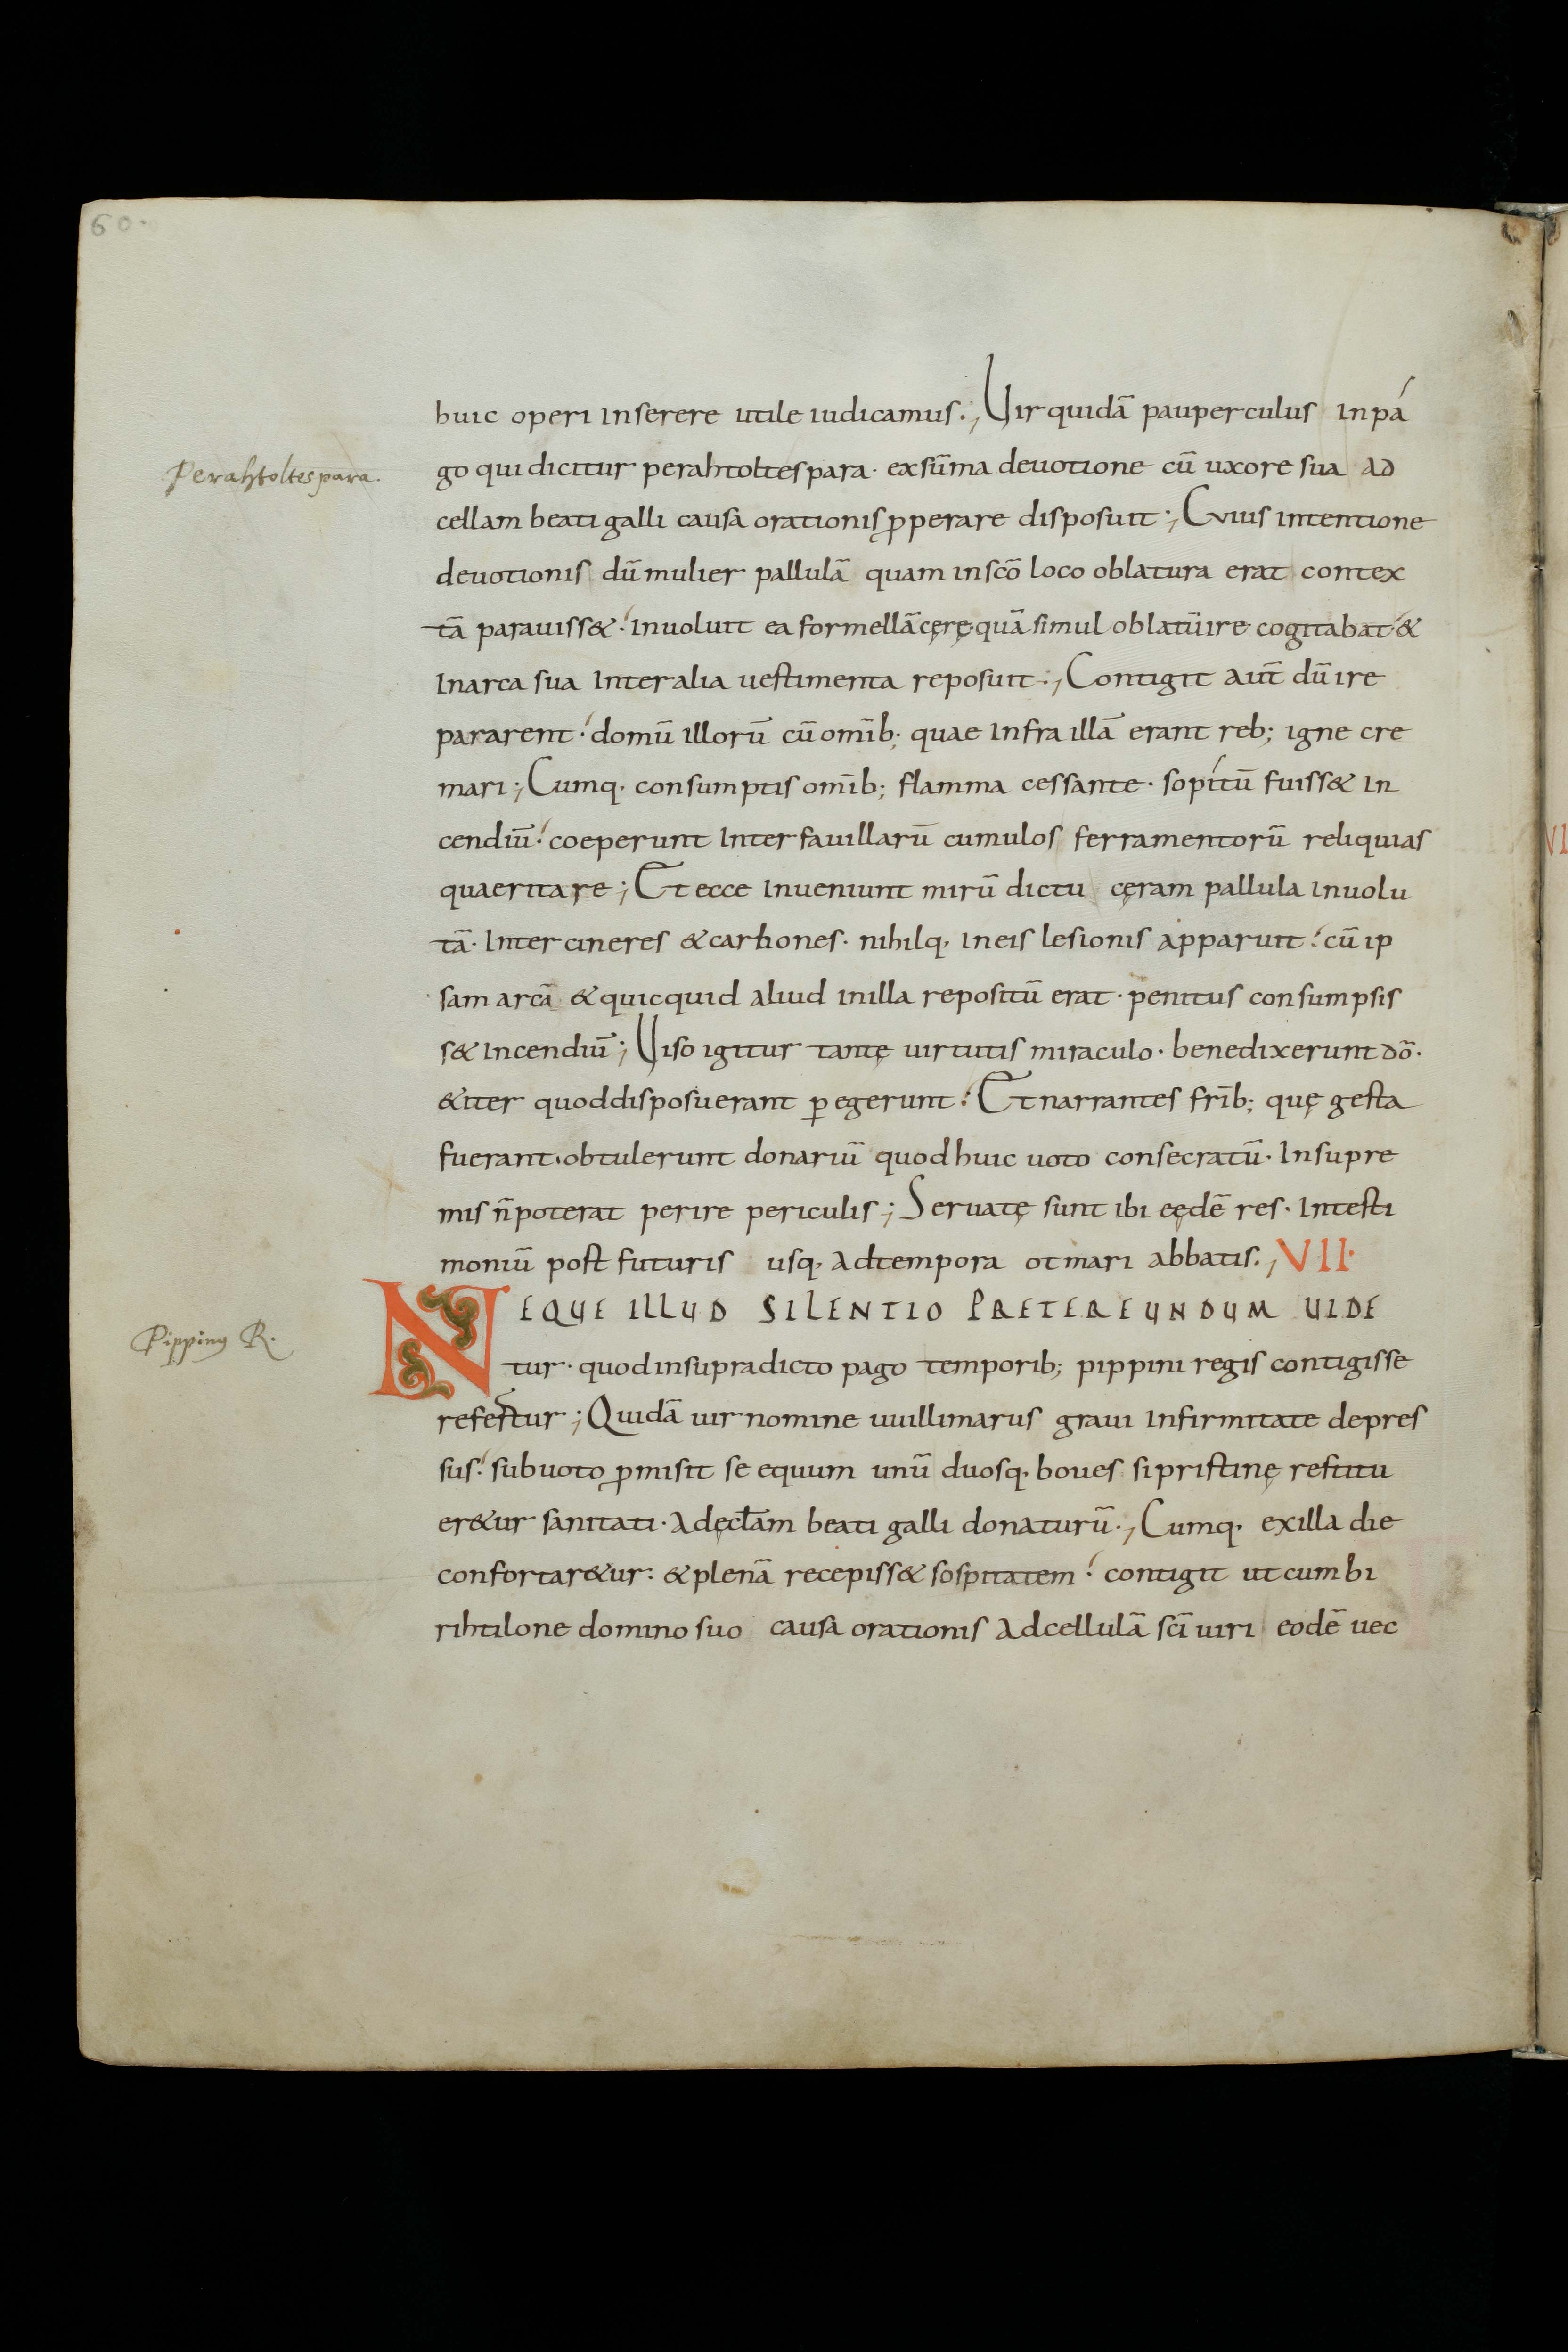 60.
huic operi inserere utile iudicamus·; Uir quidā pauperculus in pá
Perahtoltespara.
go qui dicitur perahtoltespara· ex sūma deuotione cū uxore sua ad
cellam beati galli causa orationis ꝓperare disposuit·; Cuius intentione
deuotionis dū mulier pallulā quam in scō loco oblatura erat contex
tā parauiss&· inuoluit ea formellā cęrę quā simul oblatū ire cogitabat &
in arca sua inter alia uestimenta reposuit·; Contigit aut̄ dū ire
pararent· domū illorū cū omīb; quae infra illā erant reb; igne cre
mari; Cumq· consumptis omīb; flamma cessante· sopítū fuiss& in
cendiū· coeperunt inter fauillarū cumulos ferramentorū reliquias
quaeritare; Et ecce inueniunt mirū dictu cęram pallula inuolu
tā· inter cineres & carbones· nihilq· in eis lesionis apparuit· cū ip
sam arcā & quicquid aliud in illa repositū erat· penitus consumpsis
s& incendiū; Uiso igitur tantę uirtutis miraculo· benedixerunt dō·
& iter quod disposuerant ꝑegerunt· Et narrantes frīb; quę gesta
fuerant· obtulerunt donariū quod huic uoto consecratū· in supre
mis n̄ poterat perire periculis; Seruatę sunt ibi eędē res· in testi
moniū post futuris usq· ad tempora otmari abbatis·; VII·
NEQUE ILLUD SILENTIO PRETEREUNDUM UIDE
Pipping R.
tur· quod in supradicto pago temporib; pippini regis contigisse
refertur; Quidā uir nomine uuillimarus graui infirmitate depres
sus· sub uoto ꝓmisit se equum unū duosq· boues si pristinę restitu
er&ur sanitati· ad ęccl̄am beati galli donaturū·; Cumq· ex illa die
confortar&ur· & plenā recepiss& sospitatem· contigit ut cum bi
rihtilone domino suo causa orationis ad cellulā scī uiri eodē uec